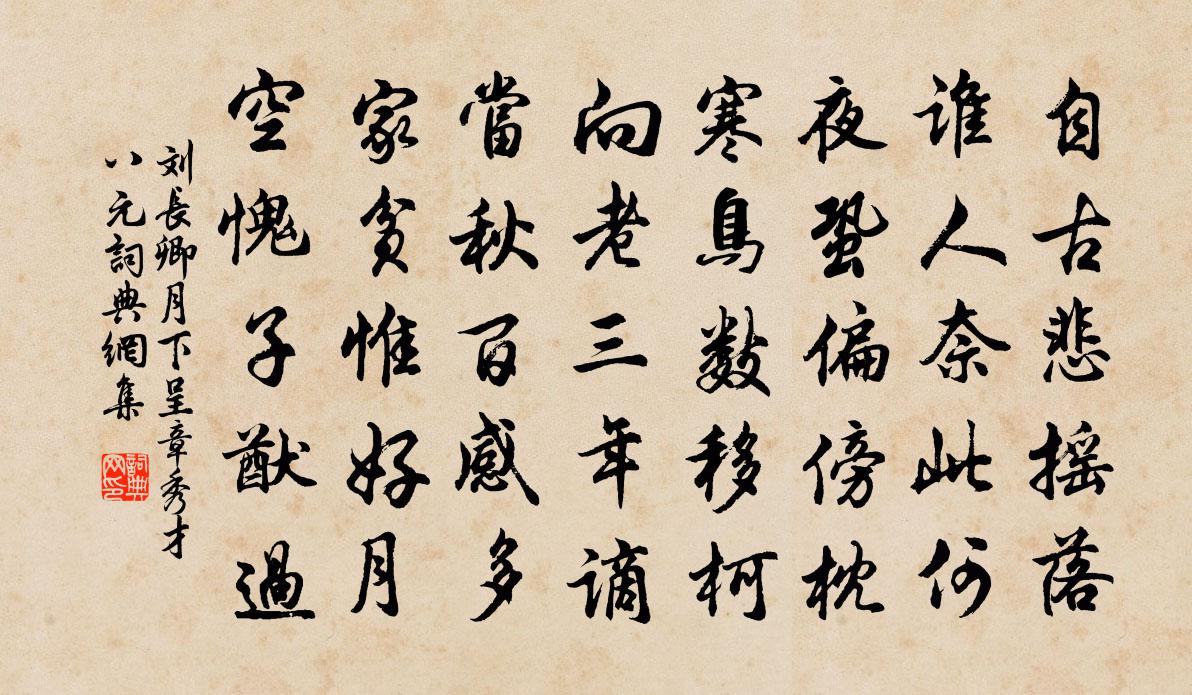 自古悲摇落
谁人奈此何
夜蛩偏傍枕
寒鳥數移柯
向老三年謫
當秋百感多
家貧惟好月
空愧子猷過
刘長卿月下呈章秀才
八元詞典網集
詞典网印